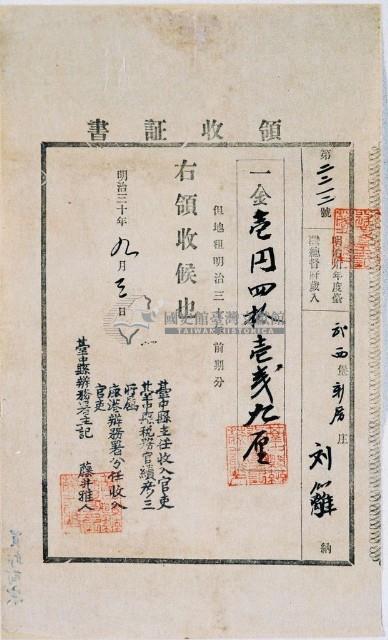 領收証書
第二二一二號
明治卅年度臺灣總督府歲入
武西堡新厝庄
刘籬
納
一金壱円四拾壱戔九厘
但地租明治三十年前期分
右領收候也
明治三十年九月三日
臺中縣主任收入官吏
臺中縣稅務官續彥三
所屬
鹿港辦務署分任收入
官吏
臺中縣辦務署主記
藤井雅人
國史館臺灣文獻館
TAIWAN HISTORICA